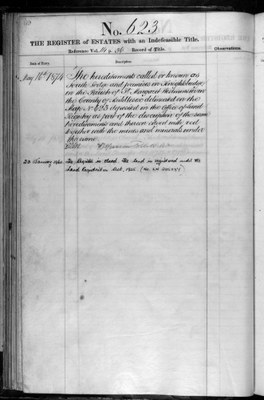 No. 623
THE REGISTER of ESTATES with an Indefeasible Title.
Reference Vol. Record of Title.
Observations.
Date of Entry.
Description.
May 16th 1874 The hereditaments called or known as
and premises in Knightsbridge
in the Parish of St. Margaret Westminster in
the County of Middlesex delineated on the
Map No. 623 deposited in the Office of Land
Registry as part of the description of the same
hereditaments and thereon edged with red
together with the mines and minerals under
the same
The Register is closed. The land is registered under the
Land Registration Act, 1925